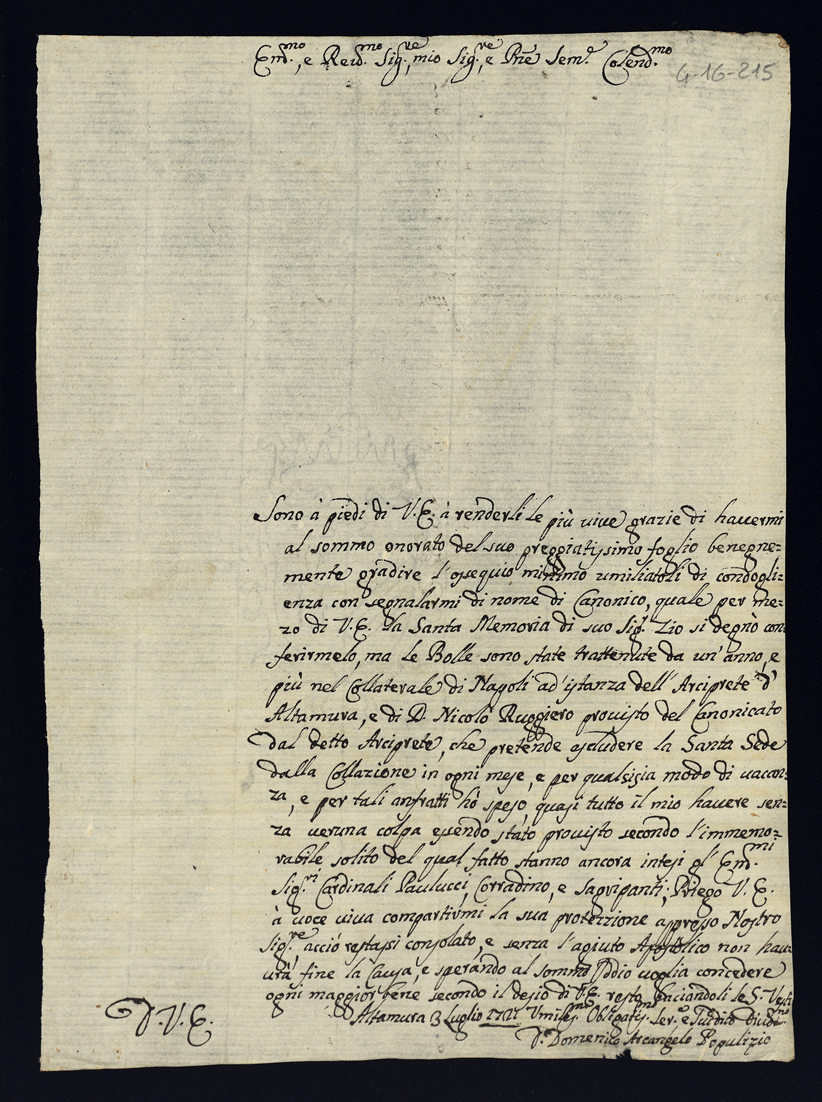 Em̅d.mo, e Reud.mo Sig.re, mio Sig.re, e Pn̅e Sem.e Colend.mo
4-16-215
Sono à piedi di V.E. à renderli le più viue grazie di hauermi
al sommo onorato del suo preggiatissimo foglio benegne=
mente gradire l'ossequio minimo umiliatoli di condogli=
enza con segnalarmi di nome di Canonico, quale per me=
zo di V.E. la Santa Memoria di suo Sig.r Zio si degnò con
ferirmelo, ma le Bolle sono state trattenute da un'anno, e
più nel Collaterale di Napoli ad'istanza dell'Arciprete d'
Altamura, e di D. Nicolò Ruggiero prouisto del Canonicato
dal detto Arciprete, che pretende escludere la Santa Sede
dalla Collazione in ogni mese, e per qualsisia modo di uacan=
za, e per tali anfratti hò speso quasi tutto il mio hauere sen=
za ueruna colpa essendo stato prouisto secondo l'immemo=
rabile solito del qual fatto stanno ancora intesi gl'Em̅d.mi
Sig.ri Cardinali Paulucci, Corradino, e Sagripanti; Priego V.E.
à uoce viua compartirmi la sua protezzione appresso Nostro
Sig.re acciò restassi consolato, e senza l'agiuto Apostolico non hau
urà fine la Causa, e sperando al sommo Iddio uoglia concedere
ogni maggior bene secondo il desio di V.E. resto baciandoli le S. Vesti
Altamura 3 Luglio 1721 Vmiliss.mo Obligatis.mo Ser.e e
D. Domenico Arcangelo Populizio
D. V. E.